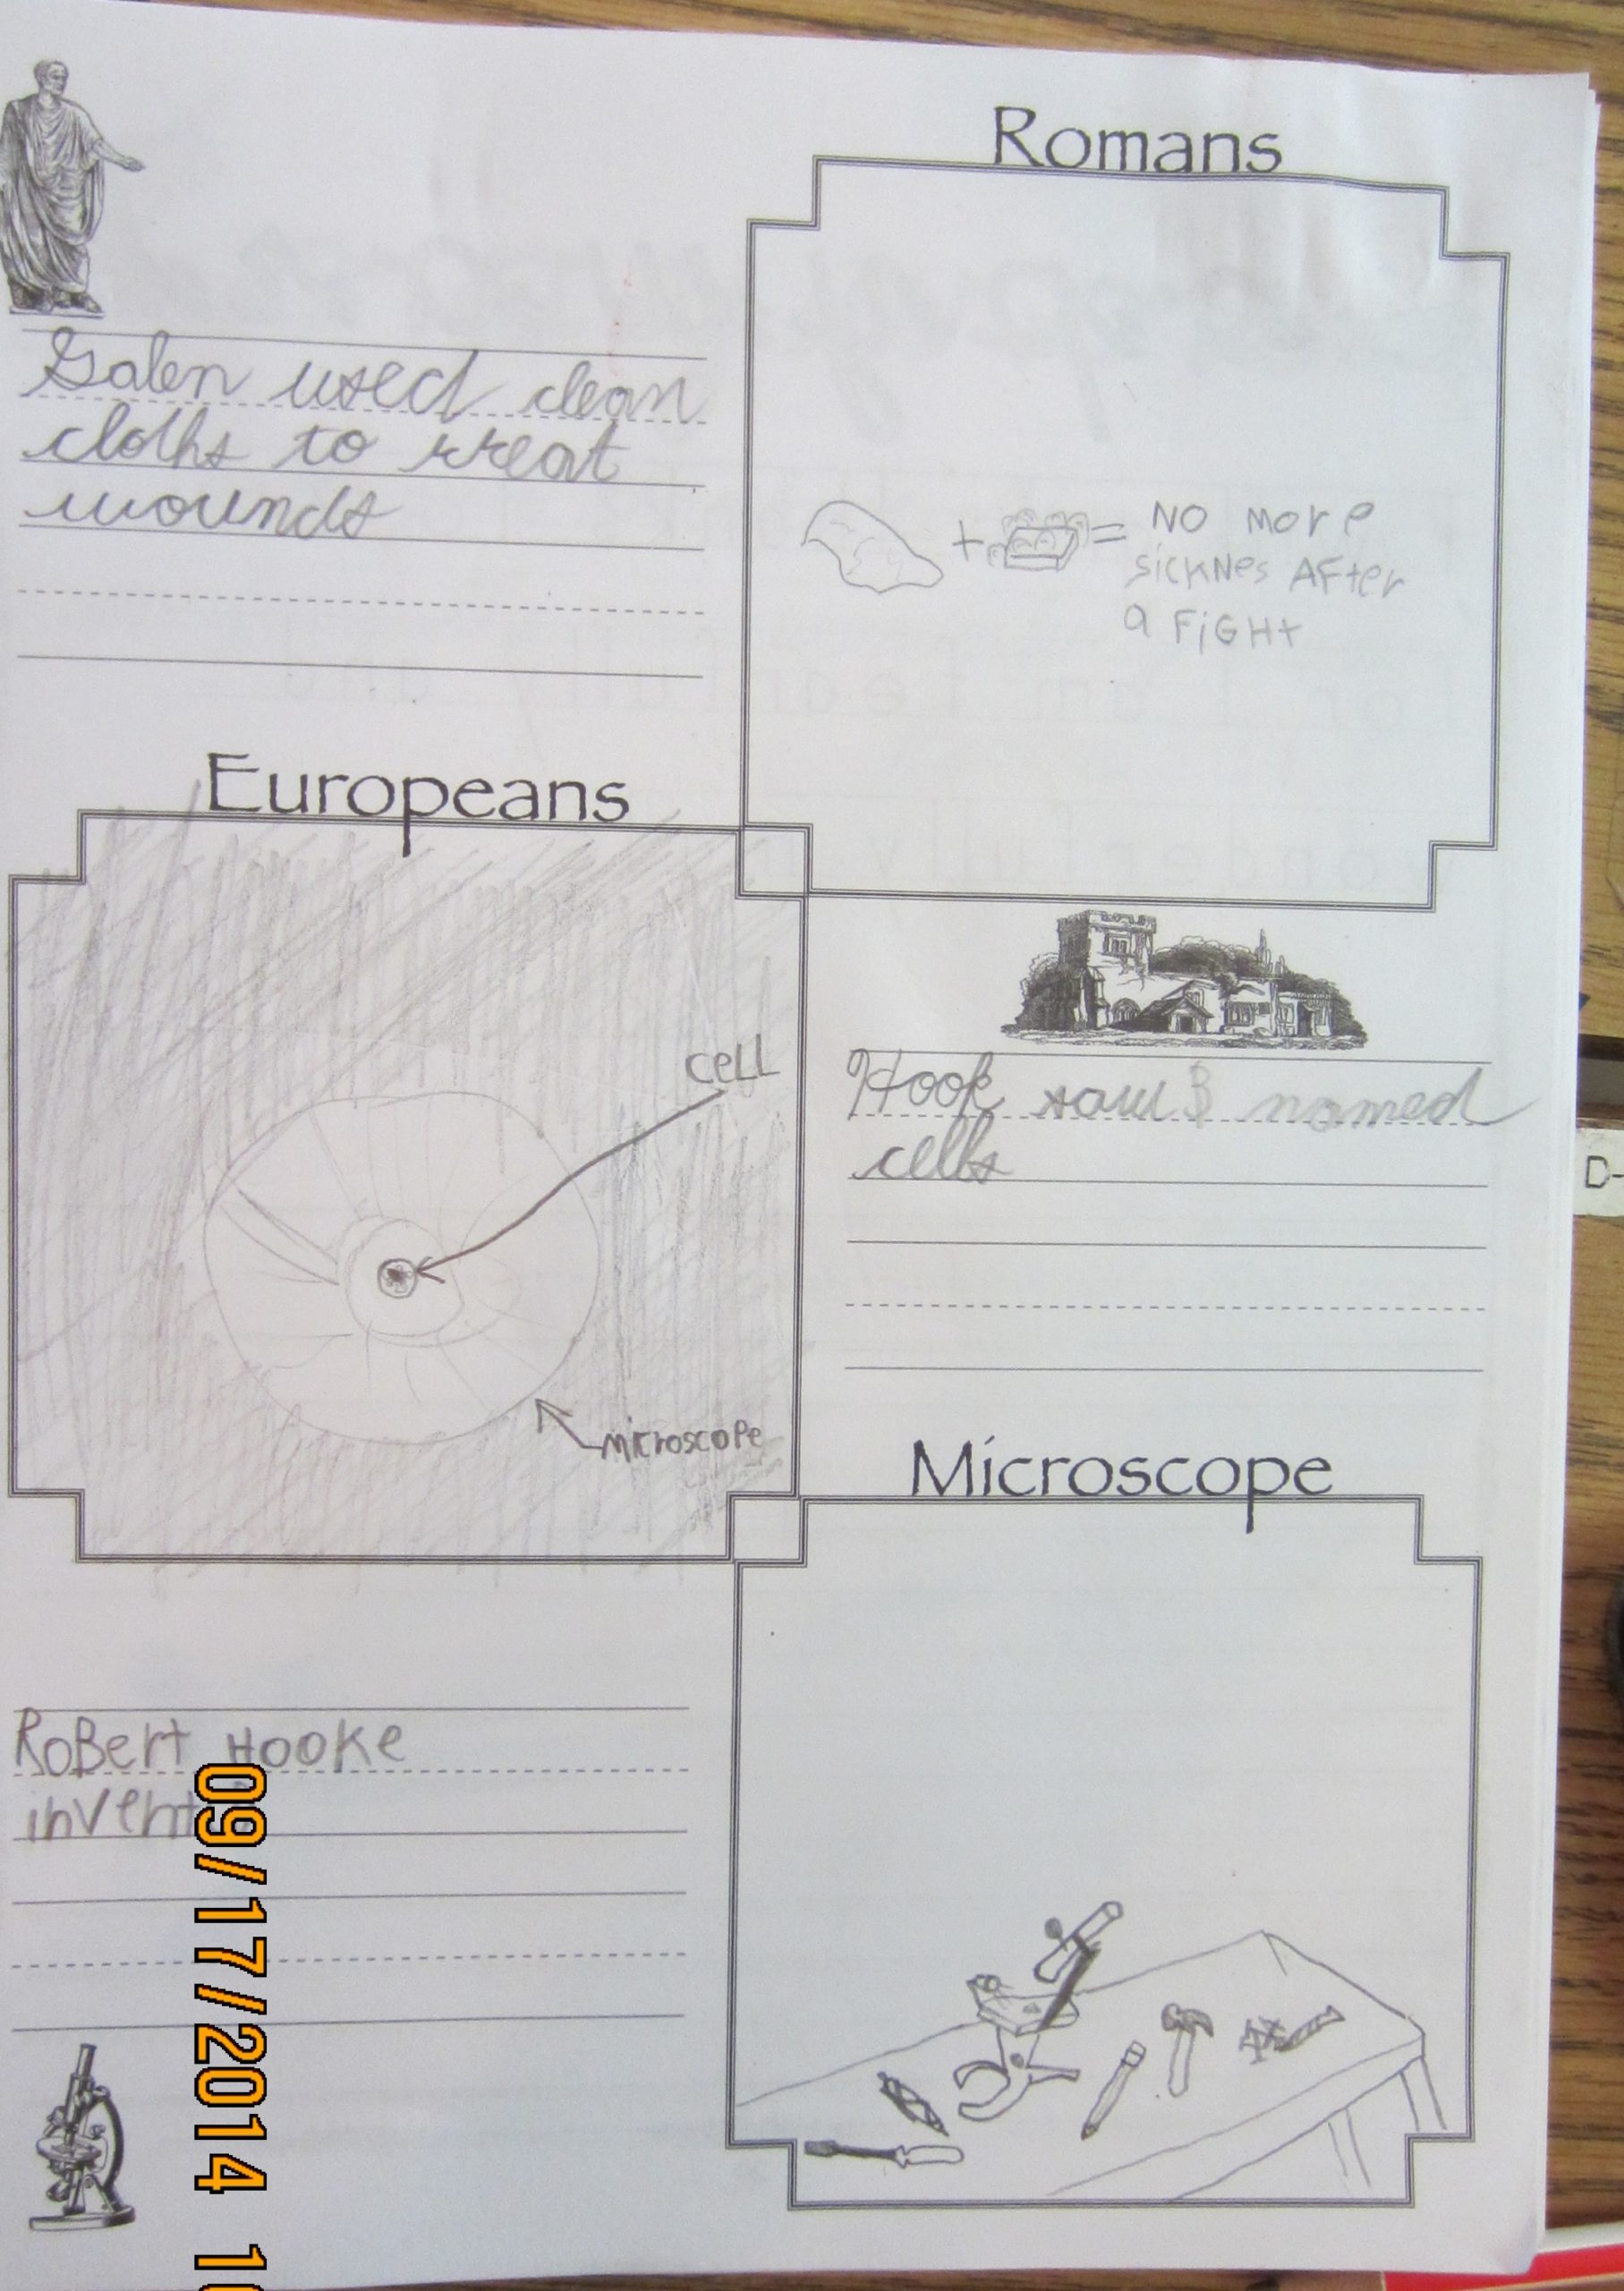 Romans
Galen used clean
cloths to treat
wounds
+ = NO more
sickNes AFter
a FiGHt
Europeans
cell
microscope
Hook saw & named
cells
D-
Microscope
RoBert Hooke
invent
09/17/2014